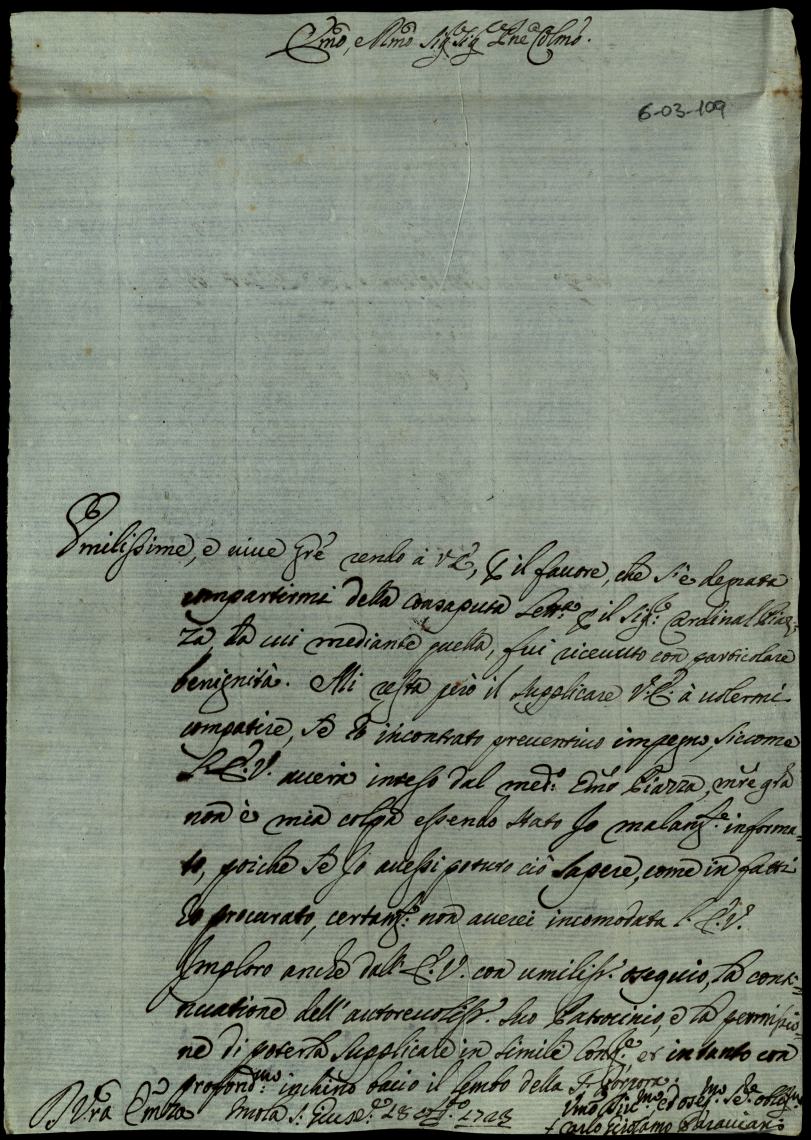 Emo, e Rmo Sig.r Sig.r Pne Colmo.
6-03-109
Umilissime, e uiue grẽ rendo à V.E., p il fauore, che s'è degnata
compartirmi della consaputa Lettra p il Sig.r Cardinal Piaz=
za, da cui mediante quella, fui riceuuto con particolare
benignità. Mi resta però il supplicare V.E. à uolermi
compatire, se hò incontrato preuentiuo impegno, siccome
l'E.V. auerà inteso dal med.o Emo Piazza, mẽ
non è mia colpa essendo stato Io malam.te informa=
to, poiche se Io auessi potuto ciò sapere, come in fatti
hò procurato, certam.te non auerei incomodata l'E.V.
Imploro anche dall'E.V. con umiliss.o ossequio, la conti=
nuatione dell'autoreuoliss.o suo Patrocinio, e la permissio=
ne di poterla supplicare in simile et intanto con
profond.mo inchino bacio il lembo della S. Porpora.
D. Vrã Emza Imola 28 1723
Umo Diu.mo ed oss.mo Se.re oblig.mo
Carlo Girolamo